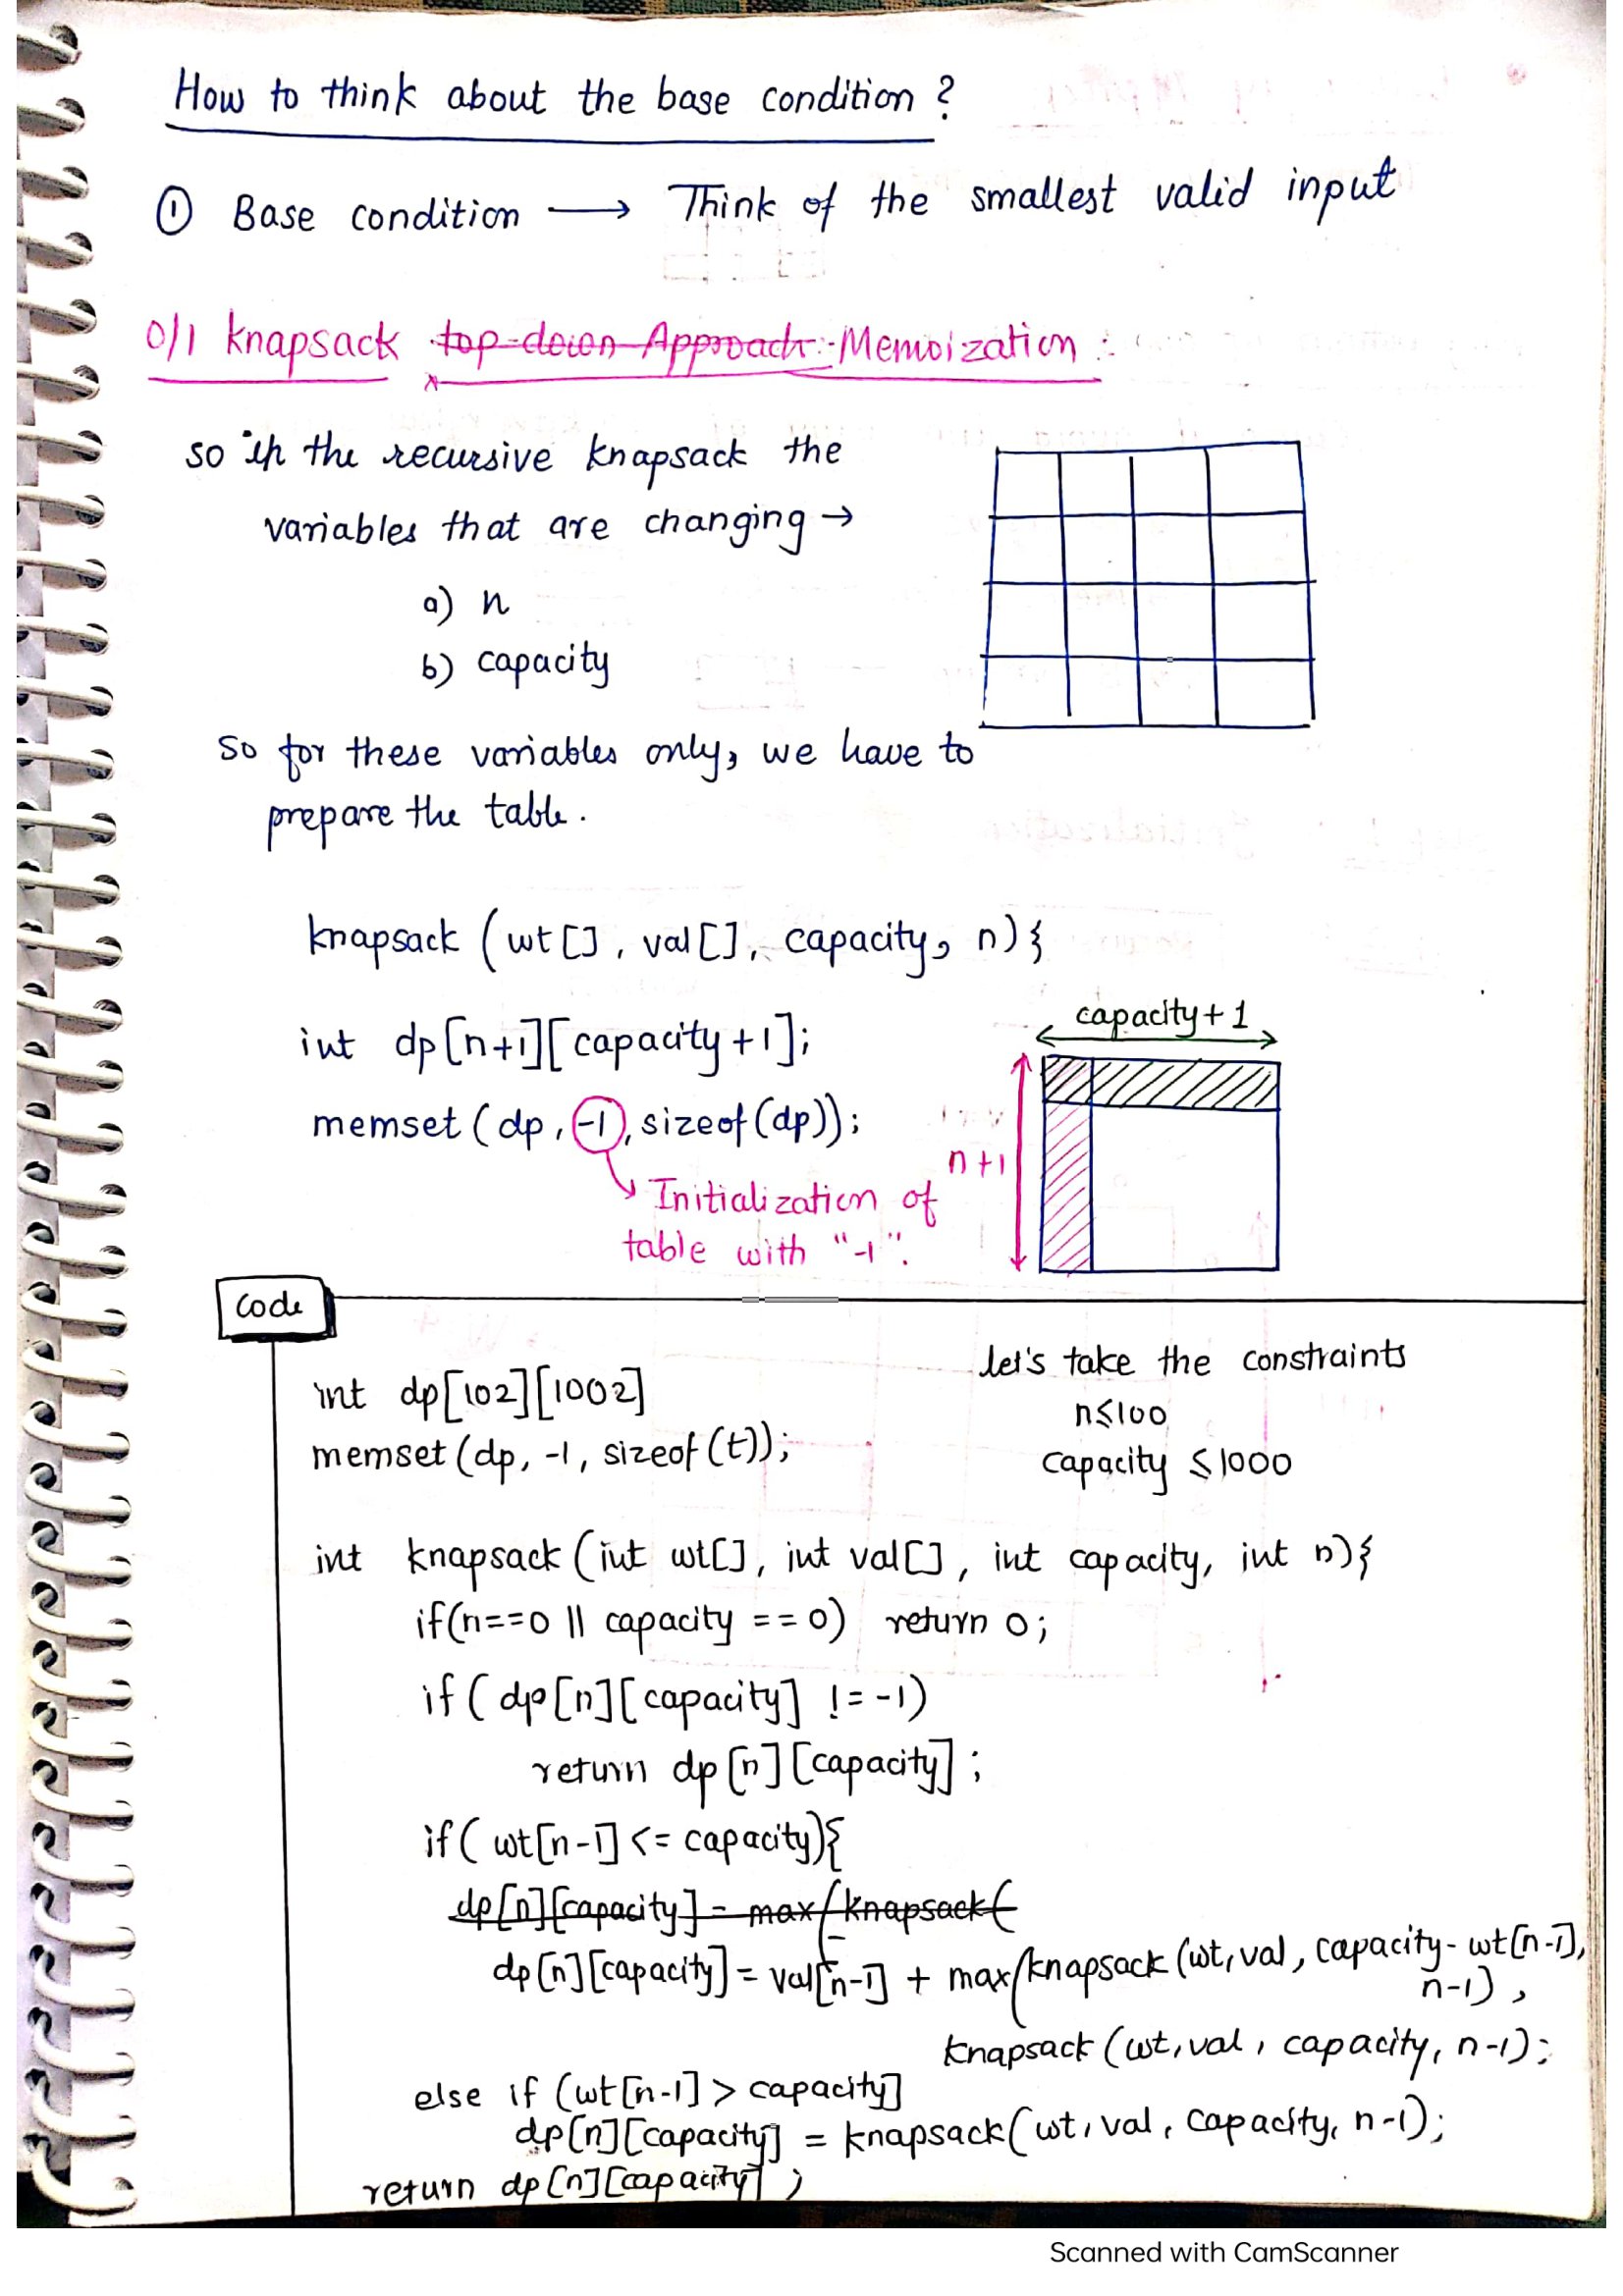 How to think about the base condition ?
① Base condition ⟶ Think of the smallest valid input
0/1 knapsack top-down Approach :- Memoization :
so in the recursive knapsack the
variables that are changing →
a) n
b) capacity
so for these variables only, we have to
prepare the table.
knapsack (wt[], val[], capacity, n){
int dp[n+1][capacity+1];
memset(dp, -1, sizeof(dp));
Initialization of
table with "-1".
capacity+1
n+1
Code
let's take the constraints
n≤100
capacity ≤1000
int dp[102][1002]
memset(dp, -1, sizeof(t));
int knapsack(int wt[], int val[], int capacity, int n){
if(n==0 || capacity ==0) return 0;
if(dp[n][capacity] !=-1)
return dp[n][capacity];
if(wt[n-1]<= capacity){
dp[n][capacity] = max(knapsack(
dp[n][capacity] = val[n-1] + max(knapsack(wt, val, capacity- wt[n-1],
n-1),
knapsack(wt, val, capacity, n-1);
else if (wt[n-1] > capacity]
dp[n][capacity] = knapsack(wt, val, capacity, n-1);
return dp[n][capacity];
Scanned with CamScanner